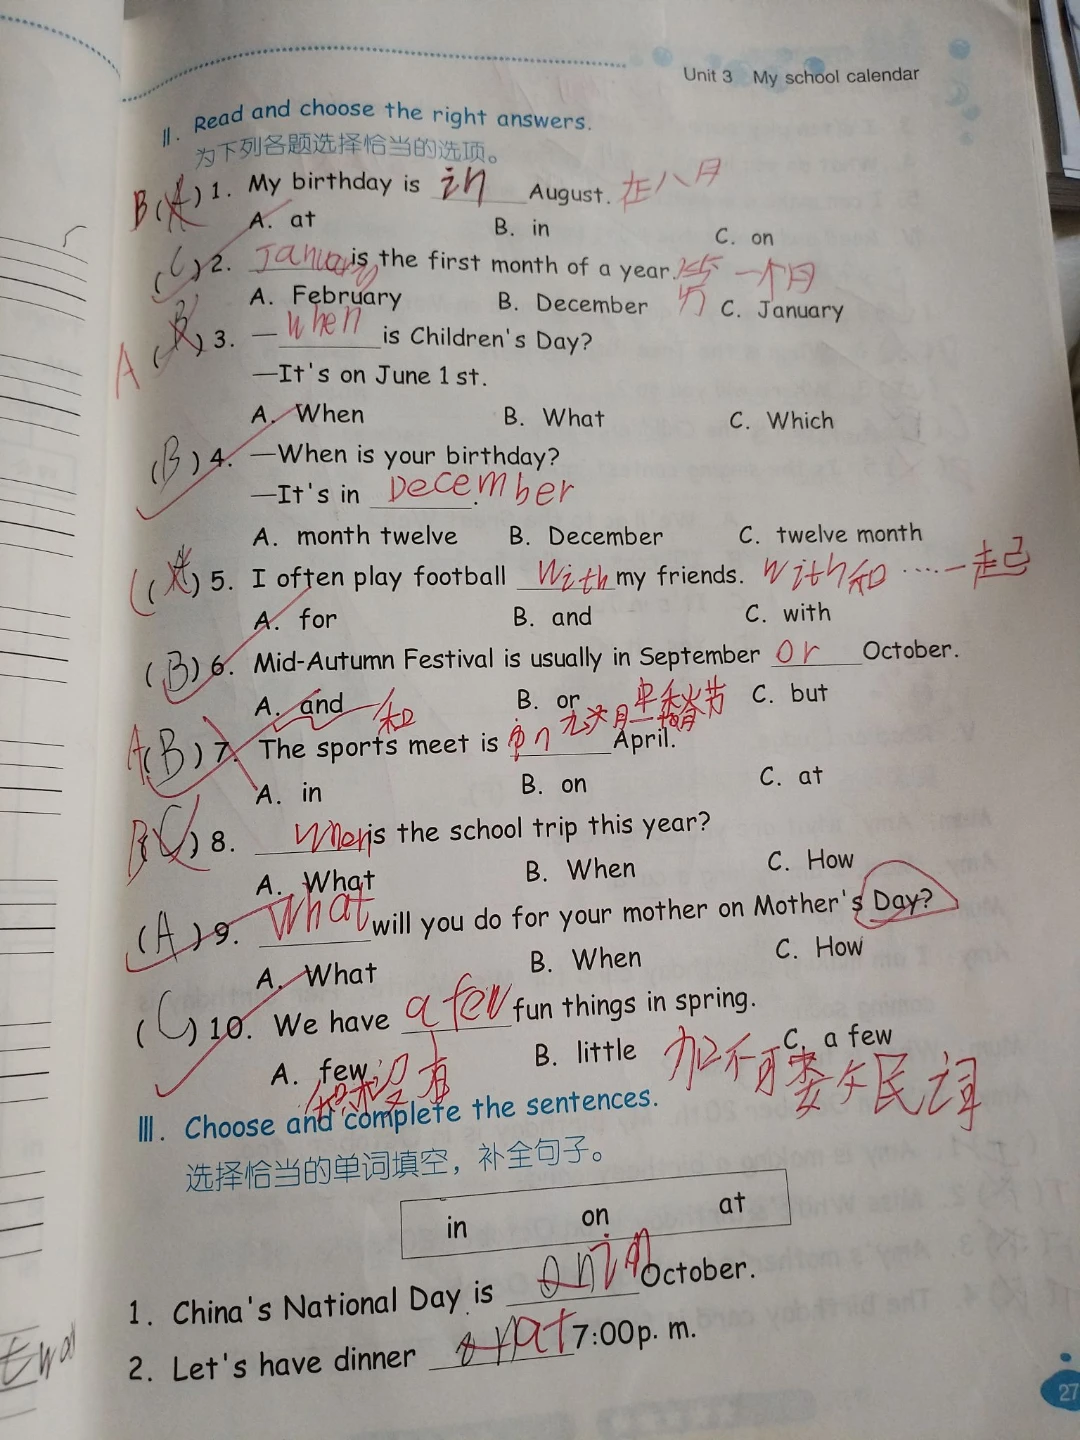 Unit 3 My school calendar
II. Read and choose the right answers.
为下列各题选择恰当的选项。
B(A) 1. My birthday is in August. 在八月
A. at B. in C. on
(C) 2. January is the first month of a year. 一个月
A. February B. December C. January
A (B) 3. — When is Children's Day?
—It's on June 1 st.
A. When B. What C. Which
(B) 4. —When is your birthday?
—It's in December.
A. month twelve B. December C. twelve month
C(A) 5. I often play football with my friends. with和……一起
A. for B. and C. with
(B) 6. Mid-Autumn Festival is usually in September or October.
A. and 和 B. or C. but
A(B) 7. The sports meet is in April.
A. in B. on C. at
B(C) 8. When is the school trip this year?
A. What B. When C. How
(A) 9. What will you do for your mother on Mother's Day?
A. What B. When C. How
(C) 10. We have a few fun things in spring.
A. few 没有 B. little C. a few
III. Choose and complete the sentences.
选择恰当的单词填空，补全句子。
in on at
1. China's National Day is on in October.
2. Let's have dinner at 7:00p. m.
27